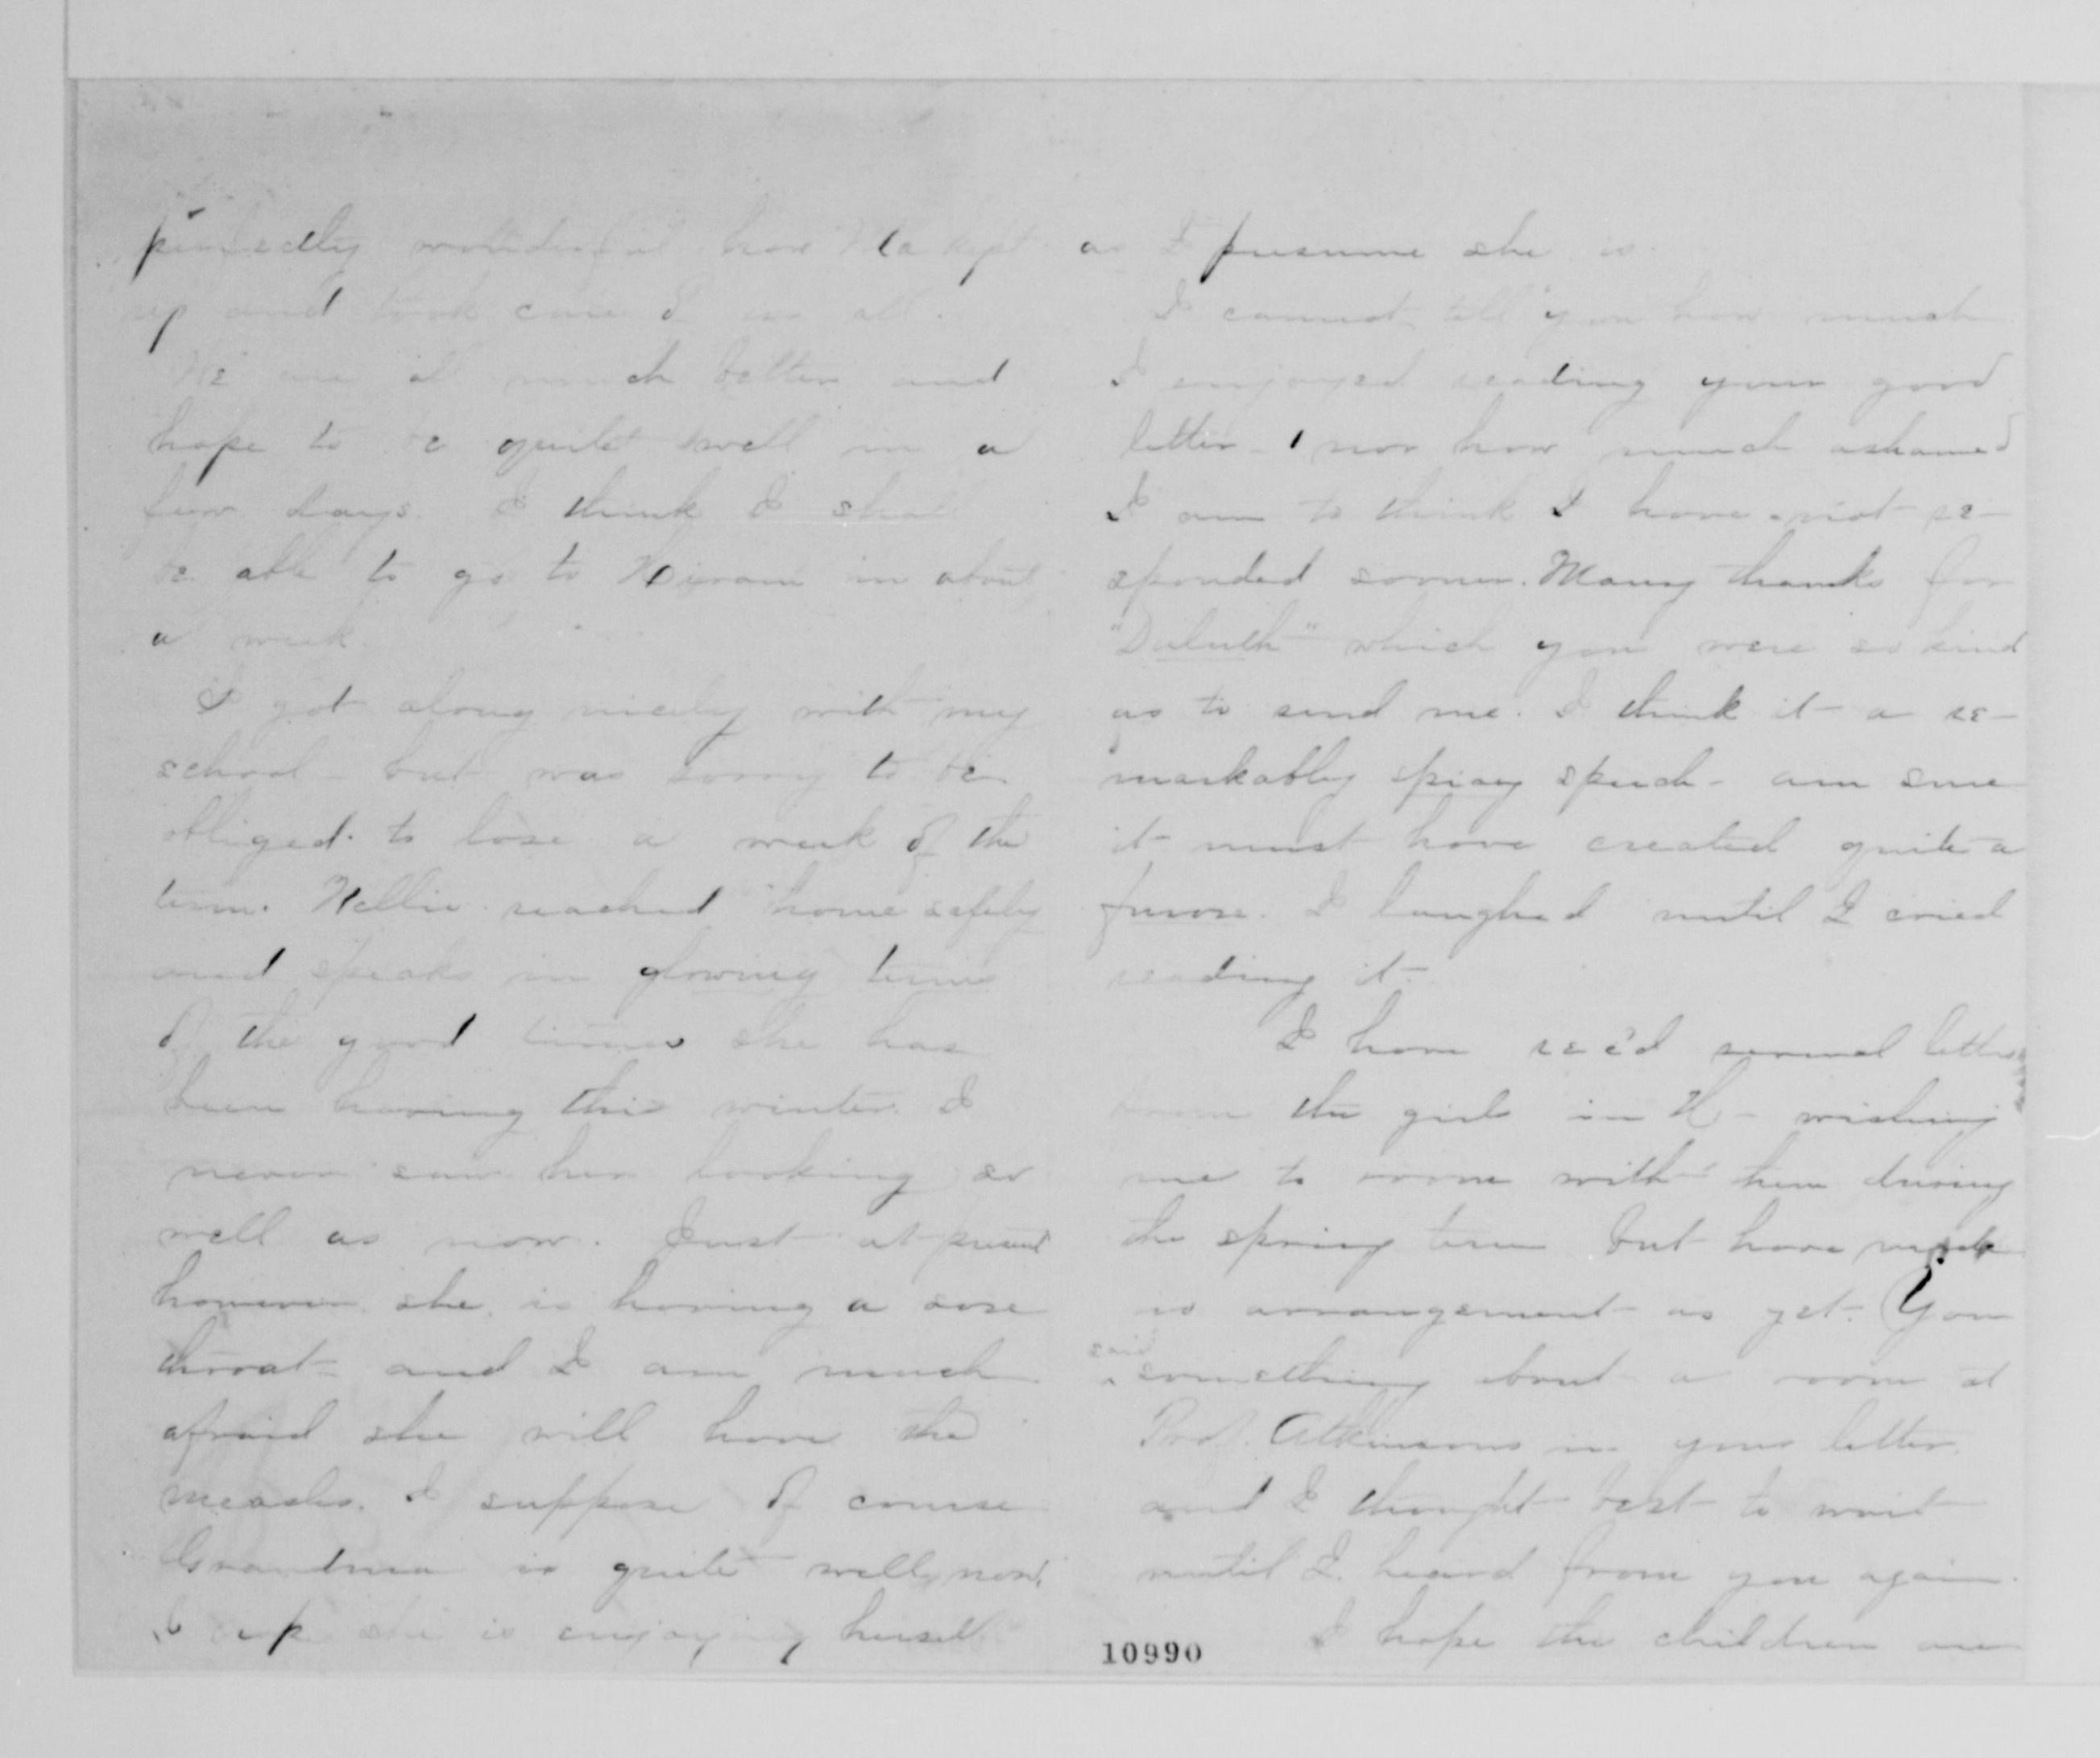 perfectly wonderful how Ma kept
up and took care of us all.
We are all much better and
hope to be quite well in a
few days. I think I shall
be able to go to Hiram in about
a week.
I got along nicely with my
school - but was sorry to be
obliged to lose a week of the
term. Nellie reached home safely
and speaks in glowing terms
of the good times she has
been having this winter. I
never saw her looking so
well as now. Just at present
however she is having a sore
throat - and I am much
afraid she will have the
measles. I suppose of course
Grandma is quite well now.
I hope she is enjoying herself
as I presume she is.
I cannot tell you how much
I enjoyed reading your good
letter - nor how much ashamed
I am to think I have not re-
sponded sooner. Many thanks for
"Duluth" which you were so kind
as to send me. I think it a re-
markably spicy speech - am sure
it must have created quite a
furore. I laughed until I cried
reading it -
I have rec'd several letters
from the girls in H - wishing
me to room with them during
the spring term but have made
no arrangement as yet. You
said
something about a room at
Prof. Atkinsons in your letter.
and I thought best to wait
until I heard from you again.
I hope the children are
10990